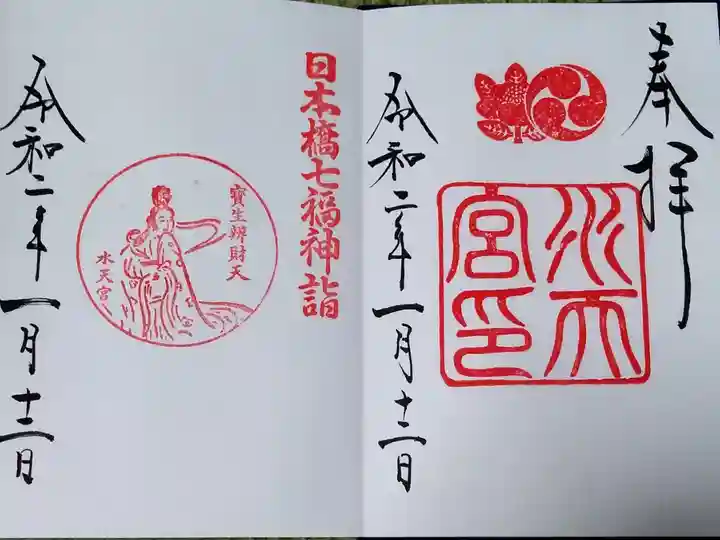 奉拝
水天宮印
令和二年一月十二日
日本橋七福神詣
寳生辨財天
水天宮
令和二年一月十二日